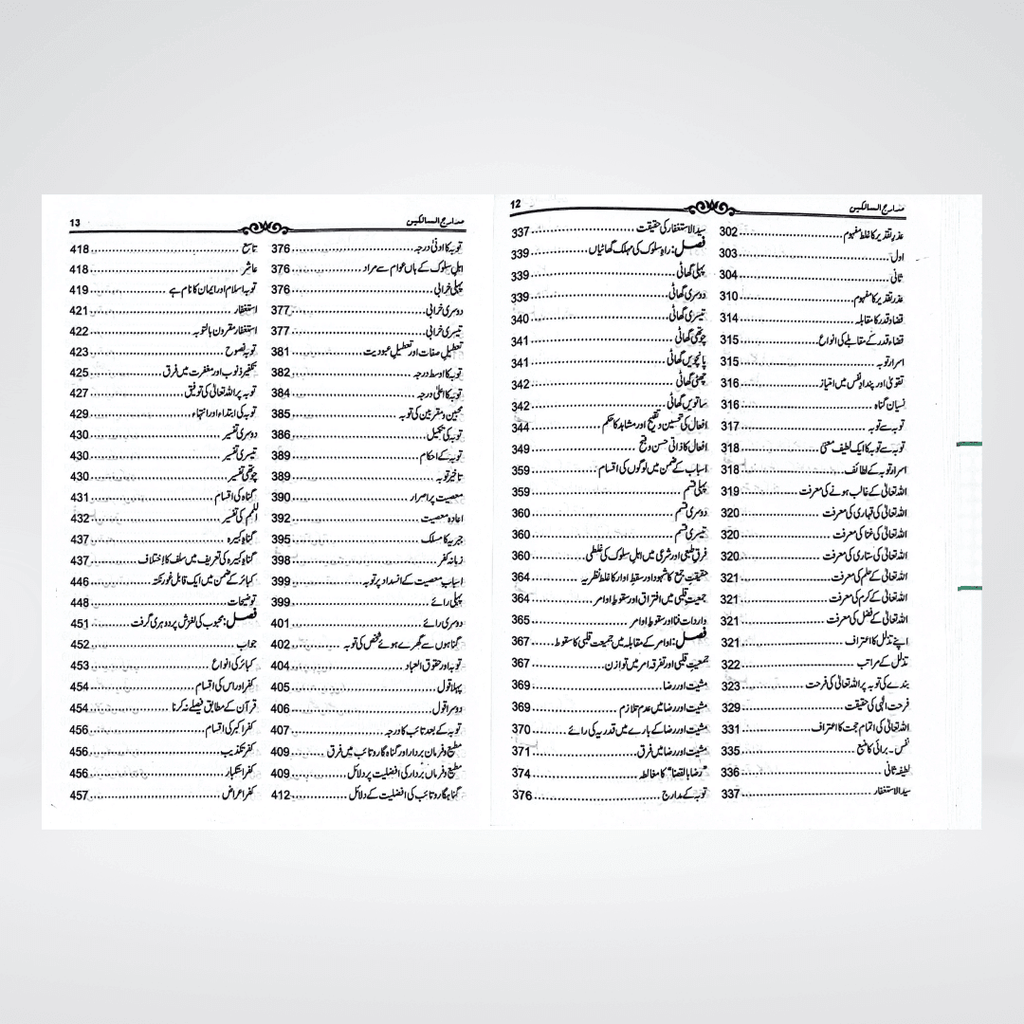 مدارج السالکین 12
عذرِ تقدیر کا غلط مفہوم 302
اول 303
ثانی 304
عذر تقدیر کا مفہوم 310
قضاء و قدر کا مقابلہ 314
قضاء و قدر کے مقابلے کی انواع 315
اسرار توبہ 315
تقویٰ اور پندار نفس میں امتیاز 316
نسیان گناہ 316
توبہ سے توبہ 317
توبہ سے توبہ کا ایک لطیف معنیٰ 318
اسرار توبہ کے لطائف 318
اللہ تعالیٰ کے غالب ہونے کی معرفت 319
اللہ تعالیٰ کی قہاری کی معرفت 320
اللہ تعالیٰ کی غنا کی معرفت 320
اللہ تعالیٰ کی ستاری کی معرفت 320
اللہ تعالیٰ کے حلم کی معرفت 321
اللہ تعالیٰ کے کرم کی معرفت 321
اللہ تعالیٰ کے فضل کی معرفت 321
اپنے تذلل کا اعتراف 321
تذلل کے مراتب 322
بندے کی توبہ پر اللہ تعالیٰ کی فرحت 323
فرحت الٰہی کی حقیقت 329
اللہ تعالیٰ کی اتمام حجت کا اعتراف 331
نفس۔ برائی کا منبع 335
لطیفہ ثانی 336
سید الاستغفار 337
سید الاستغفار کی حقیقت 337
فصل: راہ سلوک کی مہلک گھاٹیاں 339
پہلی گھاٹی 339
دوسری گھاٹی 339
تیسری گھاٹی 340
چوتھی گھاٹی 341
پانچویں گھاٹی 341
چھٹی گھاٹی 342
ساتویں گھاٹی 342
افعال کی تحسین و تقبیح اور مشاہد کا حکم 344
افعال کا ذاتی حسن و قبح 349
اسباب کے ضمن میں لوگوں کی اقسام 359
پہلی قسم 359
دوسری قسم 360
تیسری قسم 360
فرق طبعی اور شرعی میں اہل سلوک کی غلطی 360
حقیقتِ جمع کا شہود اور سقوط اوامر کا غلط نظریہ 364
جمعیت قلبی میں افتراق اور سقوط اوامر 364
واردات فنا اور سقوط اوامر 365
فصل: اوامر کے مقابلہ میں جمعیت قلبی کا سقوط 367
جمعیت قلبی اور تفرقہ امر میں توازن 367
مشیت اور رضا 369
مشیت اور رضا میں عدم تلازم 369
مشیت اور رضا کے بارے میں قدریہ کی رائے 370
مشیت اور رضا میں فرق 371
"رضا بالقضا" کا مغالطہ 374
توبہ کے مدارج 376
مدارج السالکین 13
توبہ کا ادنیٰ درجہ 376
اہل سلوک کے ہاں عوام سے مراد 376
پہلی خرابی 376
دوسری خرابی 377
تیسری خرابی 377
تعطیل صفات اور تعطیل عبودیت 381
توبہ کا اوسط درجہ 382
توبہ کا اعلیٰ درجہ 384
محبین و مقربین کی توبہ 385
توبہ کی تکمیل 386
توبہ کے احکام 389
تاخیر توبہ 389
معصیت پر اصرار 390
اعادہ معصیت 392
جبریہ کا مسلک 395
زمانہ کفر 398
اسباب معصیت کے انسداد پر توبہ 399
پہلی رائے 399
دوسری رائے 401
گناہوں سے گھرے ہوئے شخص کی توبہ 402
توبہ اور حقوق العباد 404
پہلا قول 405
دوسرا قول 406
توبہ کے بعد تائب کا درجہ 407
مطیع و فرمان بردار اور گناہ گار و تائب میں فرق 409
مطیع و فرماں بردار کی افضلیت پر دلائل 409
گناہگار و تائب کی افضلیت کے دلائل 412
تاسع 418
عاشر 418
توبہ اسلام اور ایمان کا نام ہے 419
استغفار 421
استغفار مقرون بالتوبہ 422
توبہ نصوح 423
تکفیر ذنوب اور مغفرت میں فرق 425
توبہ پر اللہ تعالیٰ کی توفیق 427
توبہ کی ابتداء اور انتہاء 429
دوسری تفسیر 430
تیسری تفسیر 430
چوتھی تفسیر 430
گناہ کی اقسام 431
اللمم کی تفسیر 432
گناہِ کبیرہ 437
گناہ کبیرہ کی تعریف میں سلف کا اختلاف 437
کبائر کے ضمن میں ایک قابل غور نکتہ 446
توضیحات 448
فصل: محبوب کی لغزش پر دوہری گرفت 451
جواب 452
کبائر کی انواع 453
کفر اور اس کی اقسام 454
قرآن کے مطابق فیصلے نہ کرنا 454
کفر اکبر کی اقسام 456
کفر تکذیب 456
کفر استکبار 456
کفر اعراض 457